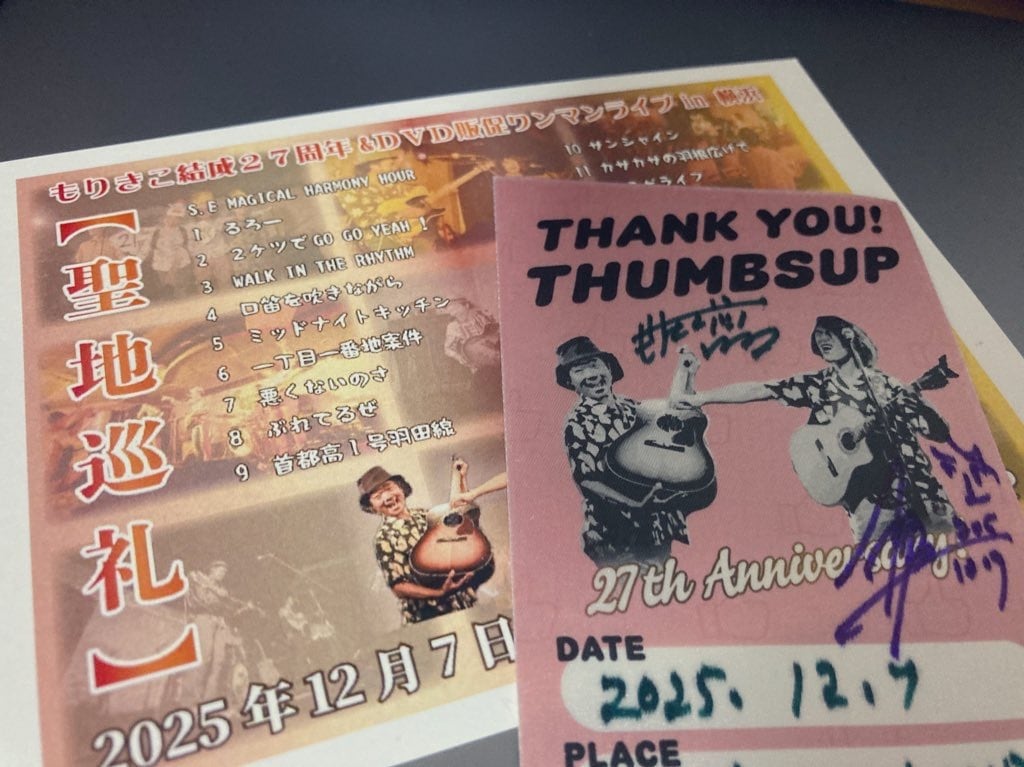 もりきこ結成27周年&DVD販促ワンマンライブ in 横浜
【聖地巡礼】
S.E MAGICAL HARMONY HOUR
1 るろー
2 2ケツでGO GO YEAH!
3 WALK IN THE RHYTHM
4 口笛を吹きながら
5 ミッドナイトキッチン
6 一丁目一番地案件
7 悪くないのさ
8 ぶれてるぜ
9 首都高1号羽田線
10 サンシャイン
11 カサカサの羽根広げて
ライブ
2025年12月7日
THANK YOU!
THUMBSUP
27th Anniversary!
DATE
2025.12.7
PLACE